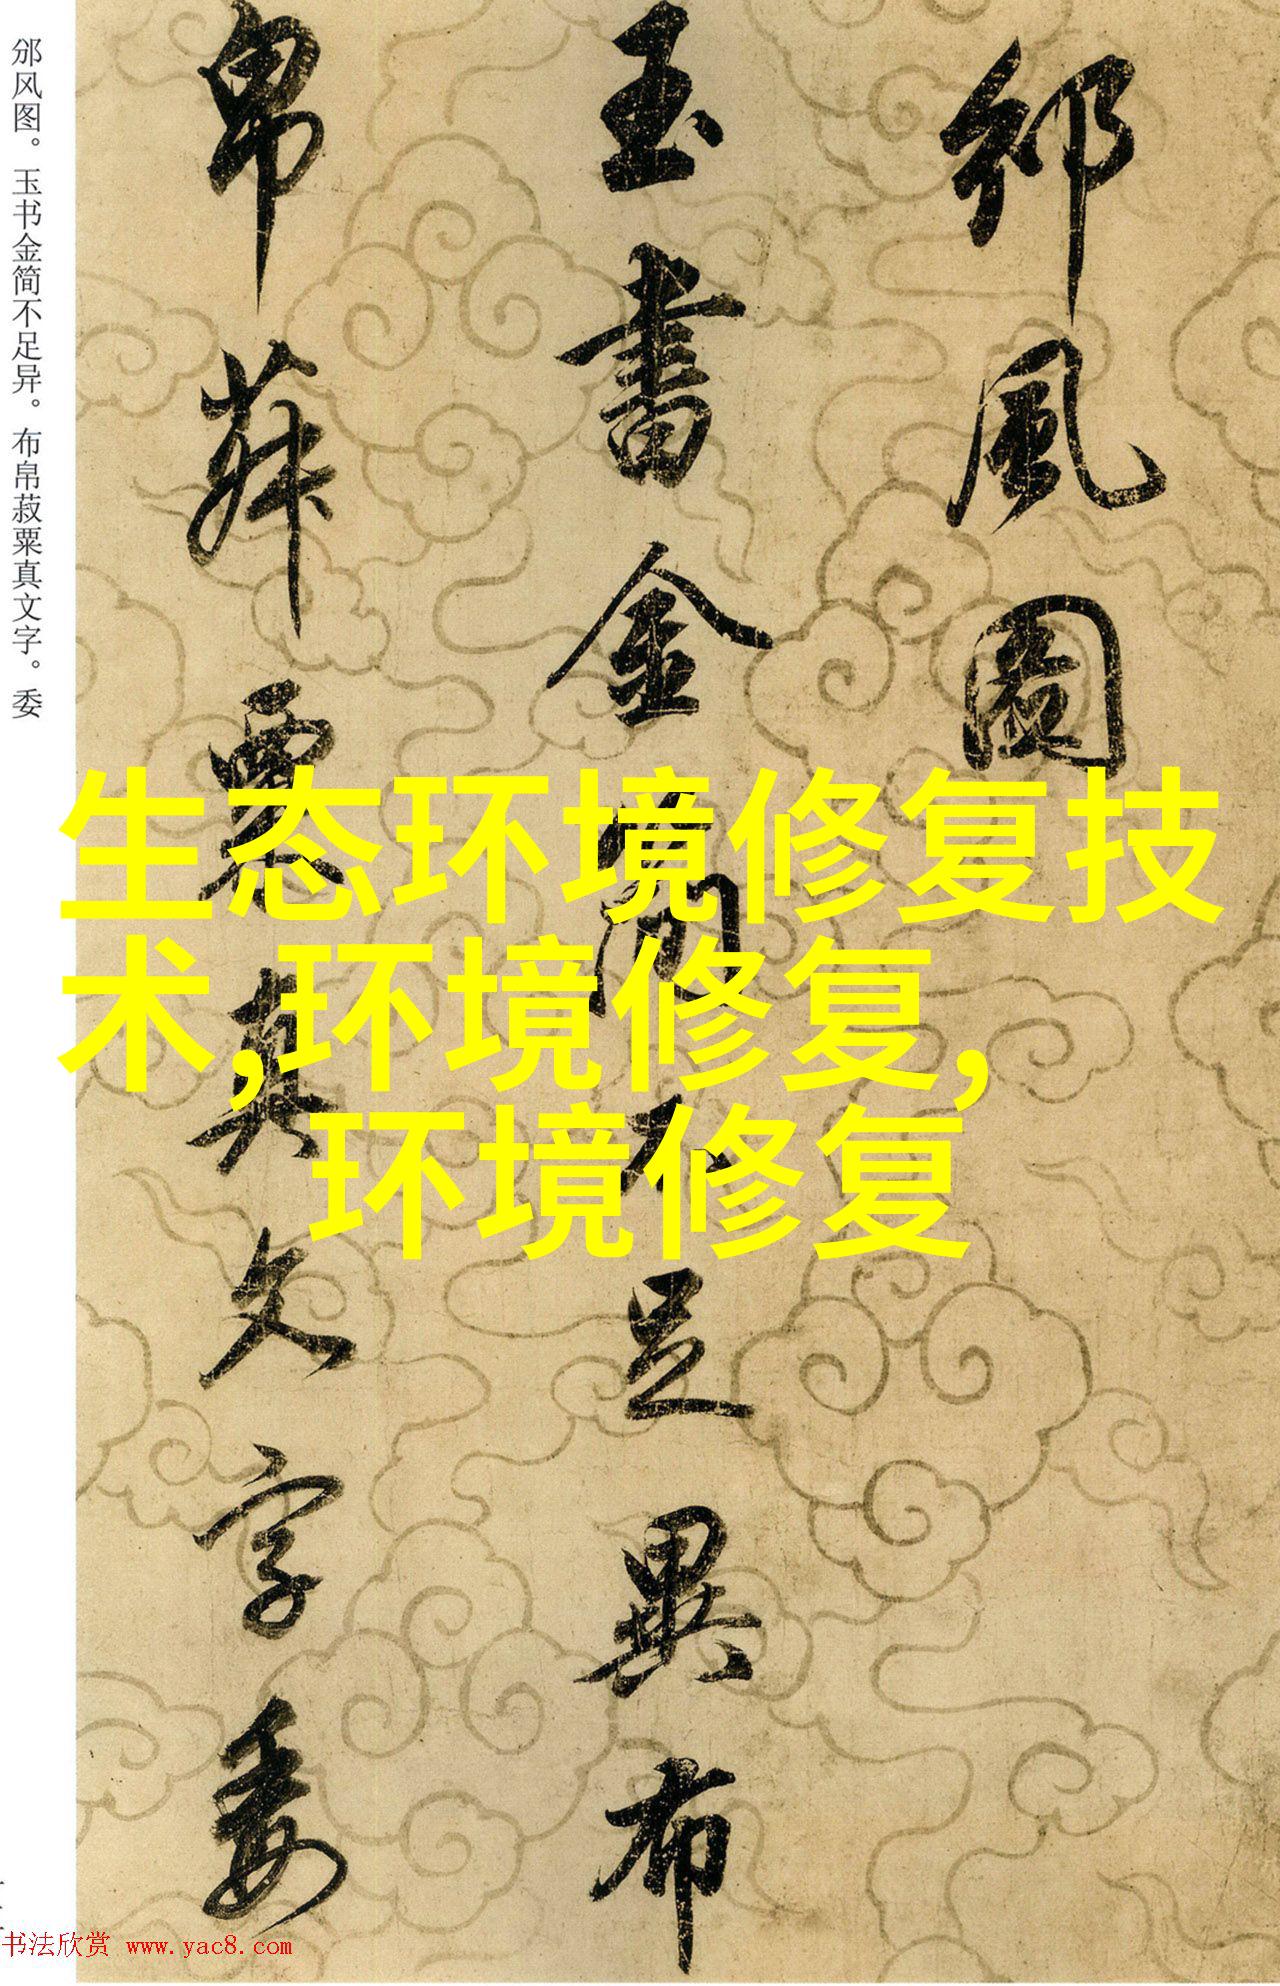 邠风图。玉书金简不足异。布帛菽粟真文字。委
邠風圖
玉書金簡不足異布
帛菽粟真文字委
生态环境修复技
术,环境修复,
环境修复
书法欣赏 www.yac8.com